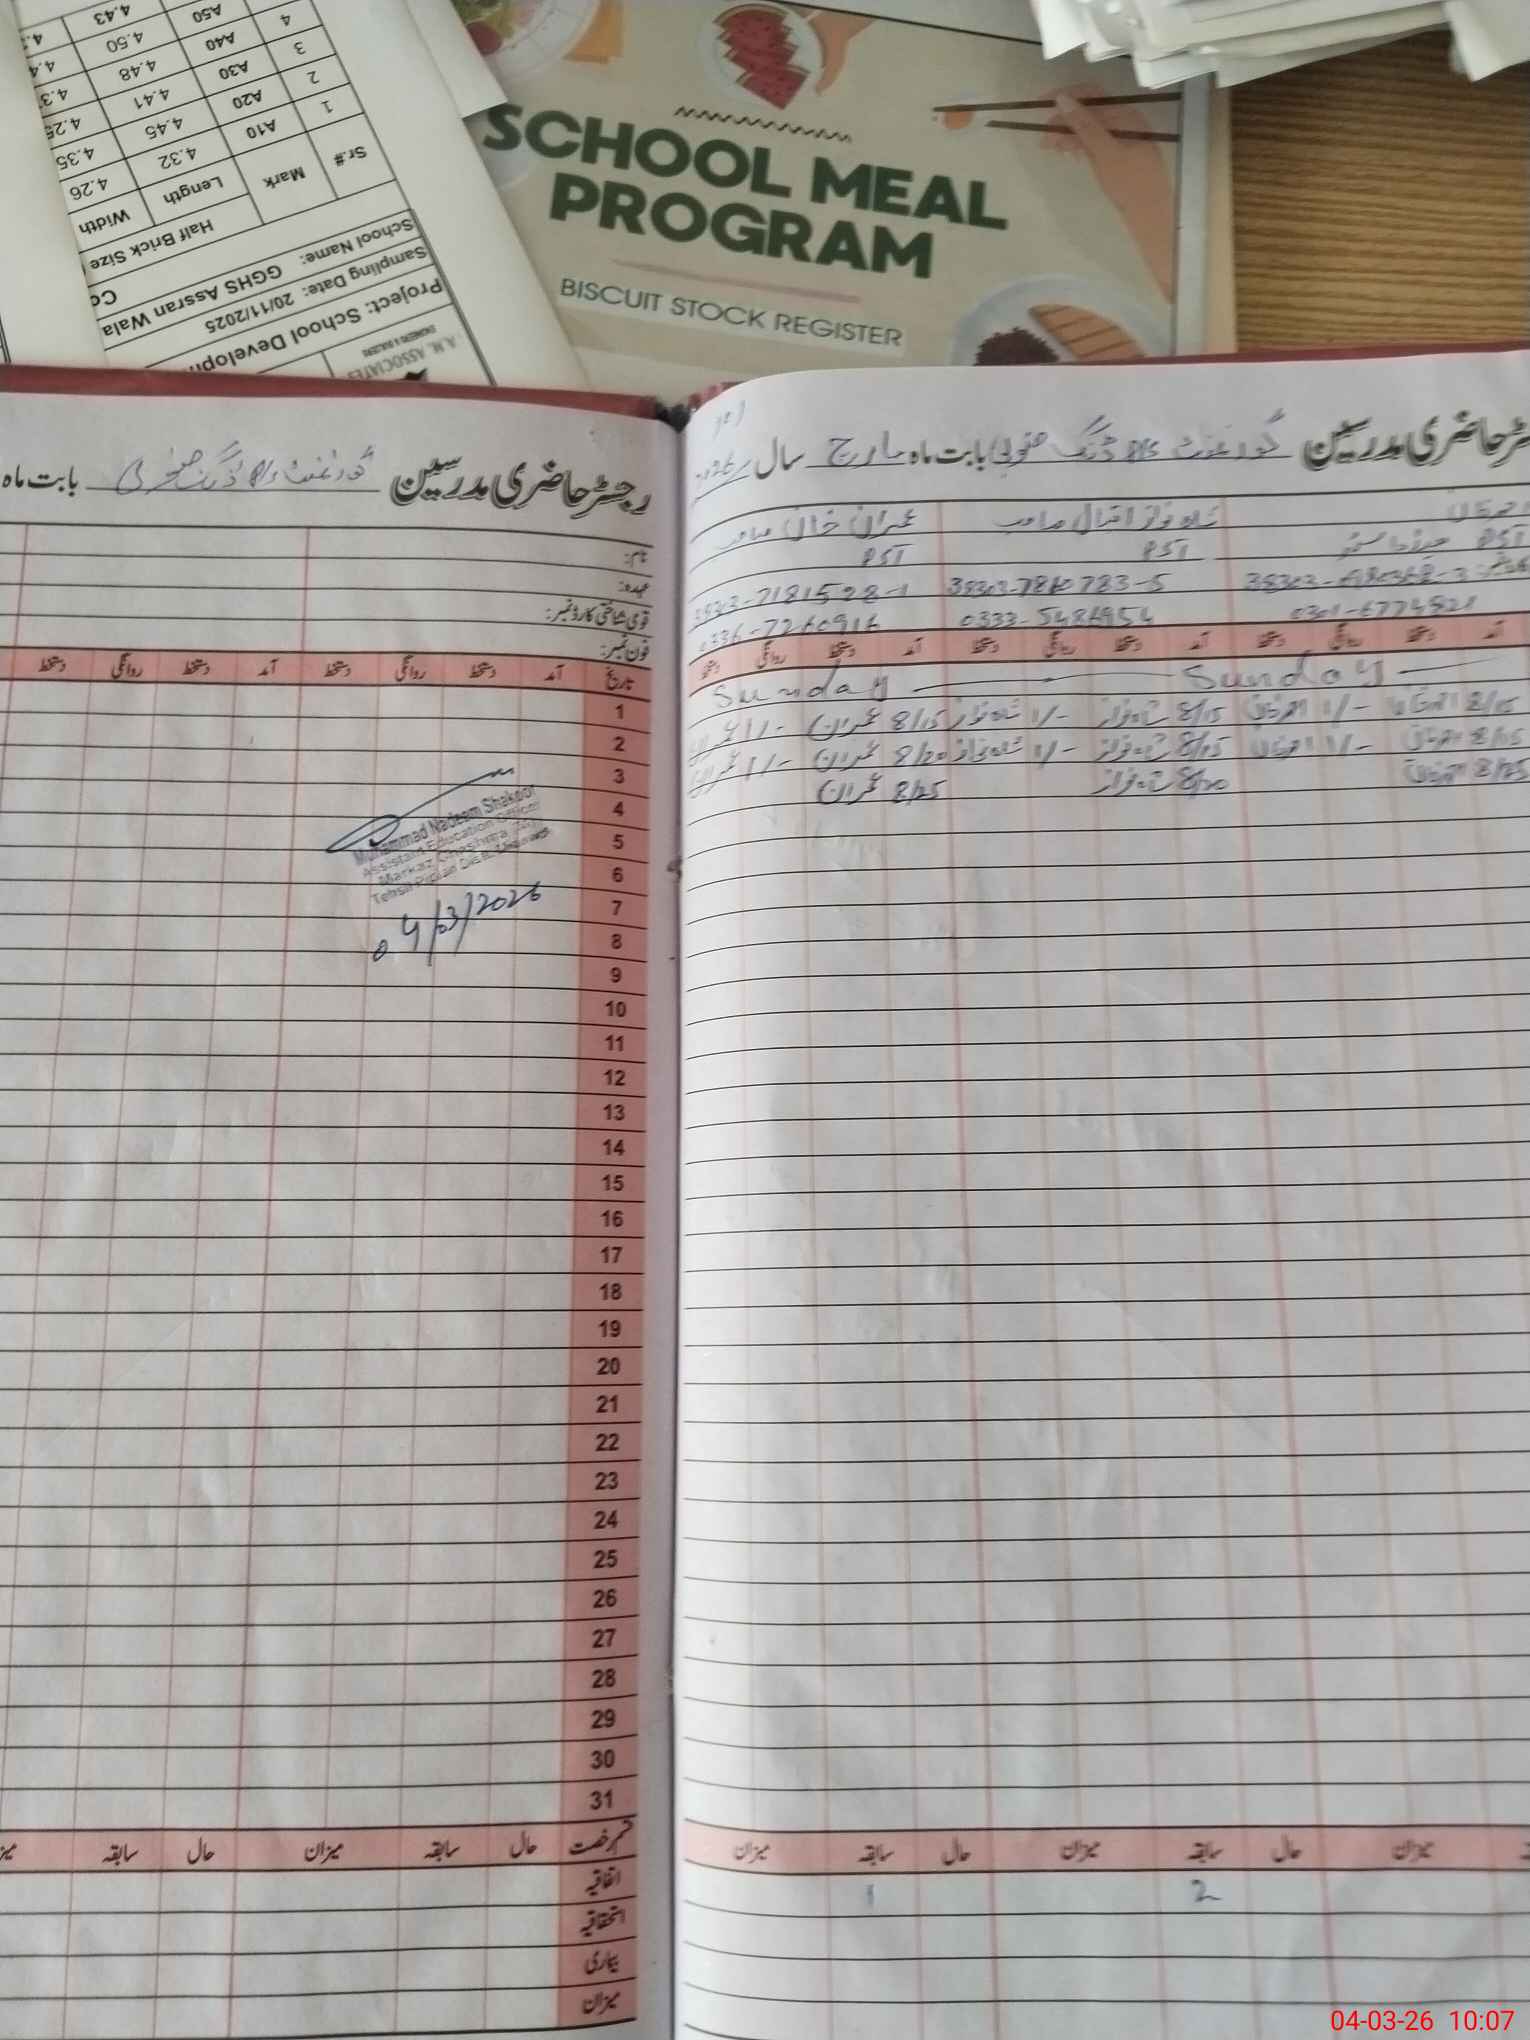 4.43
A50
4
4.50
A40
3
4.48
A30
2
4.41
A20
1
4.25
4.45
A10
4.35
4.32
4.26
Width
Length
Mark
Sr.#
Half Brick Size
School Name: GGHS Assran Wala
Sampling Date: 20/11/2025
Project: School Developm
A.H. ASSOCIATE
SCHOOL MEAL
PROGRAM
BISCUIT STOCK REGISTER
رجسٹر حاضری مدرسین گورنمنٹ بابت ماہ مارچ سال 2026
عمران خان صاحب
شاہ نواز اقبال صاحب
PST
PST
PST
38303-7181528-1
38303-7810783-5
0336-7260916
0333-5486954
0301-6774521
آمد دستخط روانگی دستخط آمد دستخط روانگی دستخط آمد دستخط روانگی دستخط
Sunday
Sunday
8/15 1/- 8/15 شاہ نواز 1/- شاہ نواز 8/15 عمران 1/-
8/15 1/- 8/15 شاہ نواز 1/- شاہ نواز 8/20 عمران 1/-
8/25 8/20 شاہ نواز 8/25 عمران
میزان
سابقہ حال میزان
سابقہ حال میزان
2
1
رجسٹر حاضری مدرسین گورنمنٹ بابت ماہ
نام:
عہدہ:
قومی شناختی کارڈ نمبر:
فون نمبر:
تاریخ آمد دستخط روانگی دستخط آمد دستخط روانگی دستخط
1
2
3
4
5
6
7
8
9
10
11
12
13
14
15
16
17
18
19
20
21
22
23
24
25
26
27
28
29
30
31
Muhammad Nadeem Shakoor
Assistant Education Officer
Markaz
Tehsil Piplan Distt. Mianwali
04/03/2026
قسم رخصت حال سابقہ میزان حال سابقہ
اتفاقیہ
استحقاقیہ
بیماری
میزان
04-03-26 10:07